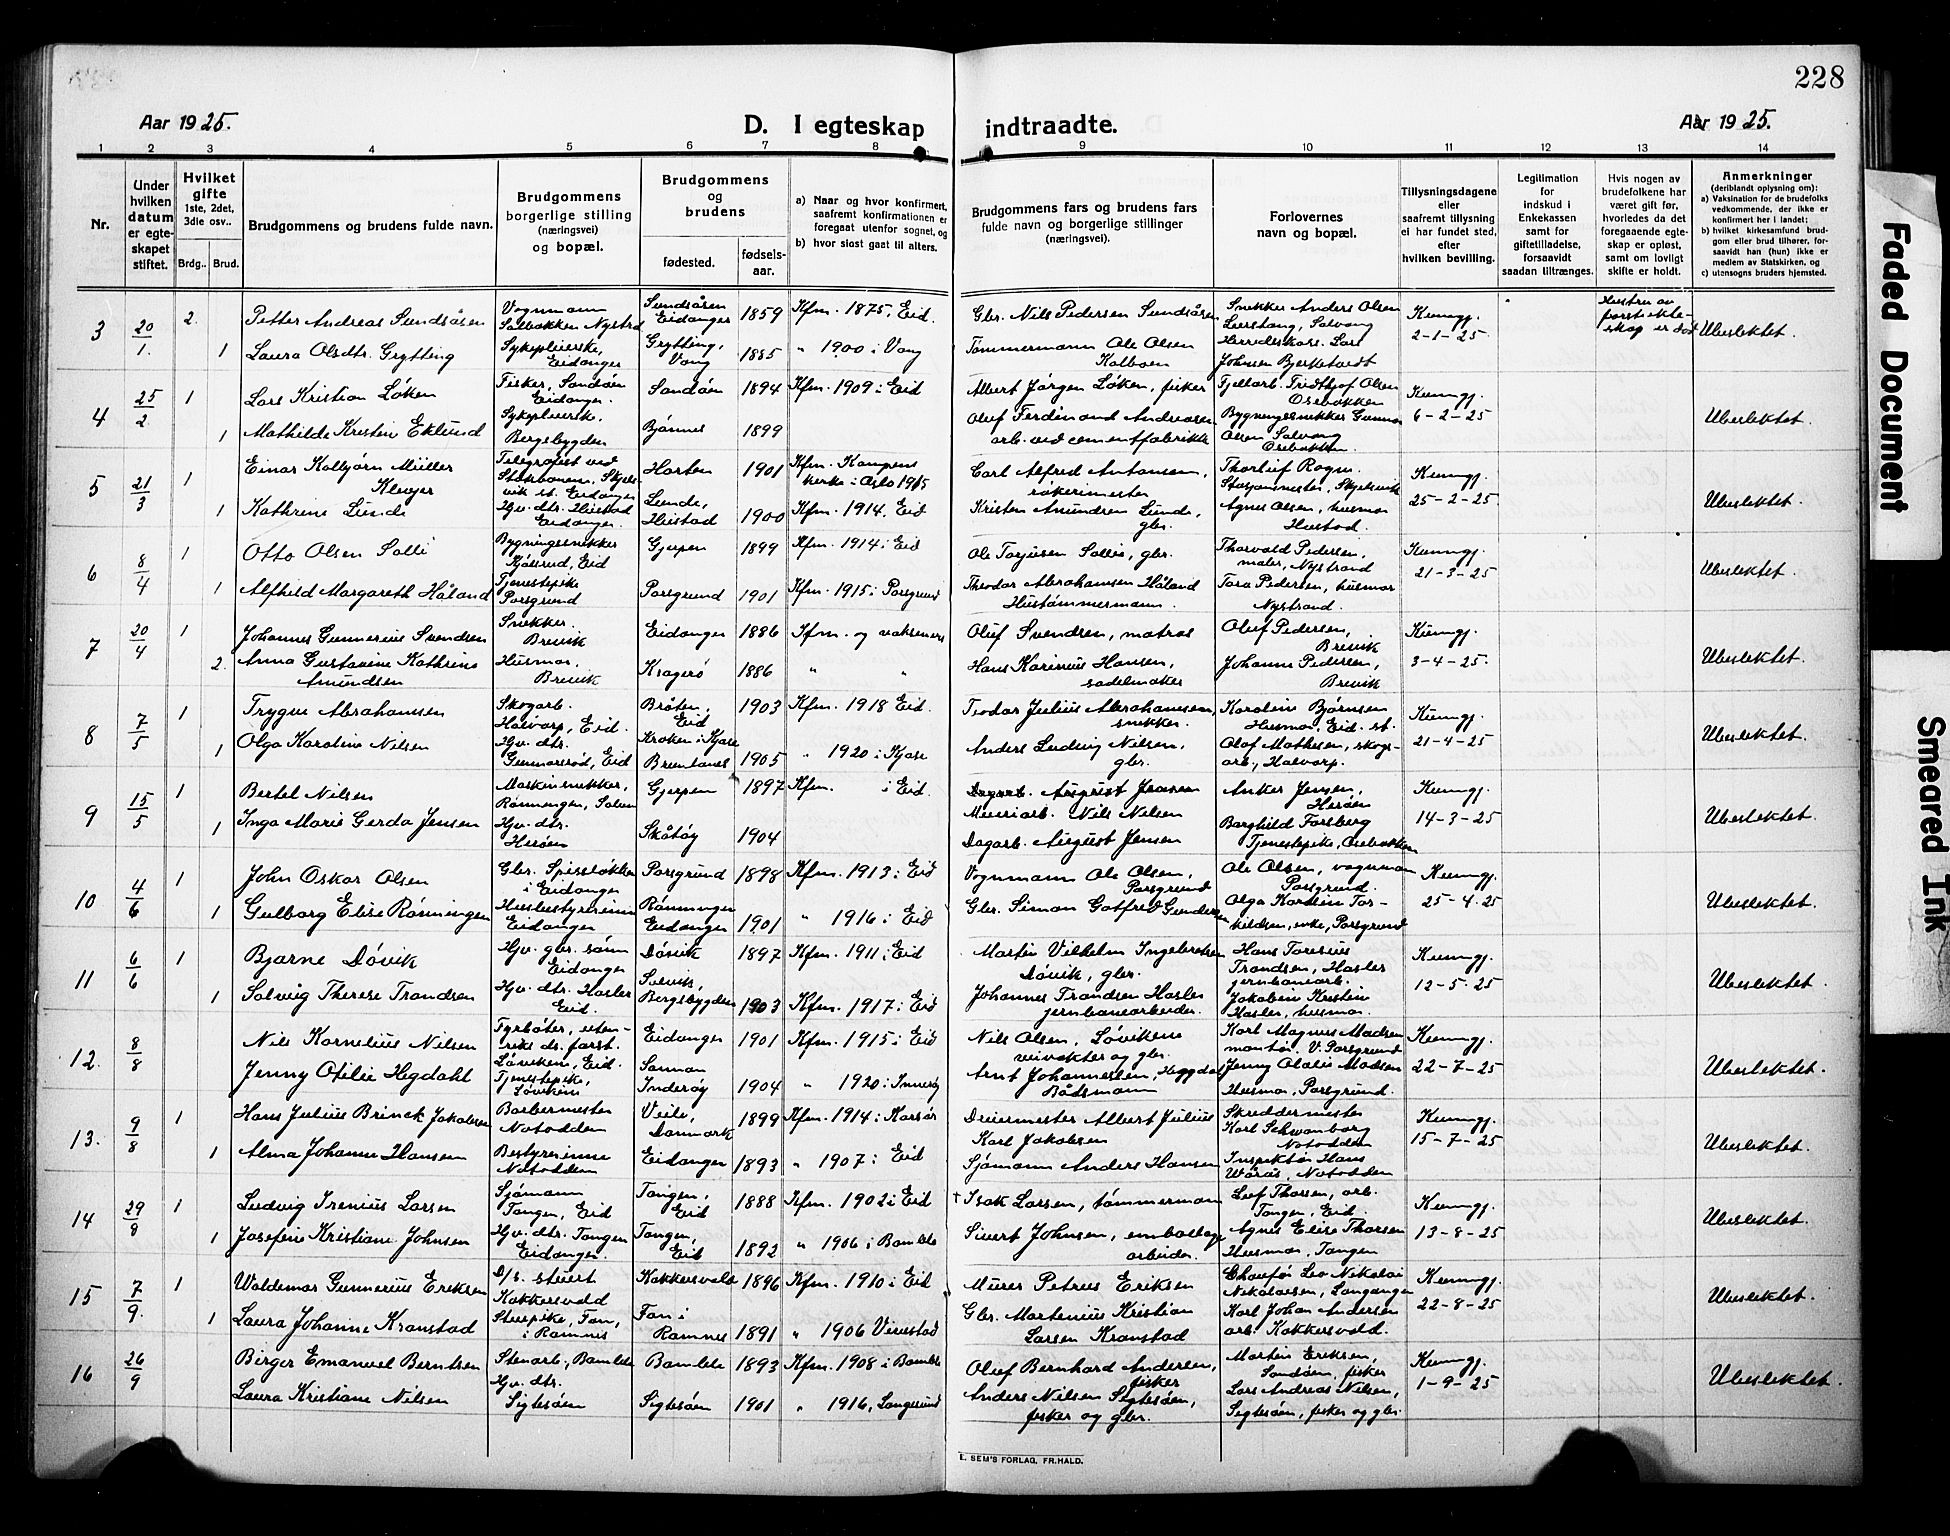 228
Aar 1925.
D. I egteskap indtraadte.
Aar 1925.
1 2 3 4 5 6 7 8 9 10 11 12 13 14
Nr.
Under hvilken datum er egteskapet stiftet.
Hvilket gifte 1ste, 2det, 3die osv..
Brdg.. Brud.
Brudgommens og brudens fulde navn.
Brudgommens borgerlige stilling (næringsvei) og bopæl.
Brudgommens og brudens
fødested.
fødselsaar.
a) Naar og hvor konfirmert, saafremt konfirmationen er foregaat utenfor sognet, og
b) hvor sidst gaat til alters.
Brudgommens fars og brudens fars fulde navn og borgerlige stillinger (næringsvei).
Forlovernes navn og bopæl.
Tillysningsdagene eller saafremt tillysning ei har fundet sted, efter hvilken bevilling.
Legitimation for indskud i Enkekassen samt for giftetilladelse, forsaavidt saadan tiltrænges.
Hvis nogen av brudefolkene har været gift før, hvorledes da det foregaaende egteskap er opløst, samt om lovligt skifte er holdt.
Anmerkninger (deriblandt oplysning om):
a) Vaksination for de brudefolks vedkommende, der ikke er konfirmert her i landet;
b) hvilket kirkesamfund brudgom eller brud tilhører, forsaavidt han (hun) ikke er medlem av Statskirken, og
c) utensogns bruders hjemsted.
3 20/1. 2. Petter Andreas Sundsåsen Vognmann Salbakken Nystrd Sundsåsen Eidanger 1859 Kfm. 1875, Eid. Gbr. Nils Pedersen Sundsåsen Snekker Anders Olsen Leirstang, Salvang Kunngj. 2-1-25 Hustru av første ekteskap er død Ubeslektet.
1 Laura Olsdtr. Grytting Sykepleierske, Eidanger Grytting, Vang 1885 " 1900 i Vang Tømmermann Ole Olsen Kalboen Herredskass. Lars Johnsen Bjerketvedt
4 25/2 1 Lars Kristian Løken Fisker, Sandøen Eidanger. Sandøen 1894 Kfm. 1909 i Eid Albert Jørgen Løken, fisker Fjellarb. Fridthjof Olsen Ørebakken Kunngj. 6-2-25 Ubeslektet.
1 Mathilde Kristin Eklund Sykepleierske. Bergsbygden Bjønnes 1899 Oluf Ferdinand Andreasen arb. ved cementfabrikk Bygningssnekker Gunnar Olsen Salvang Ørebakken
5 21/3 1 Einar Kolbjørn Müller Klewjer Telegrafist ved Statsbanene, Skjelsvik st. Eidanger Horten 1901 Kfm. Kampens kirke i Oslo 1915 Carl Alfred Antonsen, røkerimester Thorleif Rogn. Stasjonsmester, Skjelsvik Kunngj. 25-2-25 Ubeslektet
1 Kathrine Lunde Hjv. dtr. Heistad Eidanger. Lunde, Heistad 1900 Kfm. 1914. Eid Kristen Amundsen Lunde, gbr. Agnes Olsen, husmor Heistad.
6 8/4 1 Otto Olsen Solli Bygningssnekker Kjølsrud, Eid Gjerpen 1899 Kfm. 1914 i Eid Ole Torjusen Sollie, gbr. Thorvald Pedersen, maler, Nystrand Kunngj. 21-3-25 Ubeslektet.
1 Alfhild Margareth Håland Tjenestepike Porsgrund Porsgrund 1901 Kfm. 1915 i Porsgrund Theodor Abrahamsen Håland Hustømmermann. Tora Pedersen, husmor Nystrand.
7 20/4 1 Johannes Gunnerius Svendsen Snekker. Brevik Eidanger 1886 Kfm. og vaksinert Oluf Svendsen, matros Oluf Pedersen, Brevik Kunngj. 3-4-25. Ubeslektet.
2. Anna Gustavine Kathrine Amundsen Husmor, Brevik Kragerø 1886 " " Hans Karinius Hansen, sadelmaker Johanne Pedersen, Brevik
8 7/5 1 Trygve Abrahamsen Skogarb. Halvarp, Eid. Bråten, Eid 1903 Kfm. 1918 Eid. Teodor Julius Abrahamsen, snekker. Karoline Bjørnsen Husmor, Eid. st. Kunngj. 21-4-25 Ubeslektet.
1 Olga Karoline Nilsen Hjv. dtr. Gunnarsrød, Eid Kroken i Kjose Brunlanes 1905 " 1920 i Kjose Anders Ludvig Nilsen, gbr. Olaf Mathisen, skogarb., Halvarp.
9 15/5 1 Bertel Nilsen Maskinsnekker, Rønningen, Solum Gjerpen 1897 Kfm. i Eid. Dagarb. August Jensen Murerarb. Nils Nilsen Anker Jensen, Herøen Kunngj. 14-3-25 Ubeslektet.
1 Inga Marie Gerda Jensen Hjv. dtr. Herøen Skåtøy 1904 Dagarb. August Jensen Borghild Forsberg Tjenestepike, Ørebakken
10 4/6 1 John Oskar Olsen Gbr. Spirsløkken i Eidanger Porsgrund 1898 Kfm. 1913 i Eid Vognmann Ole Olsen, Porsgrund Ole Olsen, vognman Porsgrund. Kunngj. 25-4.25 Ubeslektet.
1 Gulborg Elise Rønningen Husbestyrerinne Eidanger Rønningen Eidanger 1901 " 1916 i Eid Gbr. Simon Gotfred Gundersen Olga Karolin Torkildsen, enke, Porsgrund
11 6/6 1 Bjarne Døvik Hjv. gbr. sønn Eidanger Døvik 1897 Kfm. 1911 i Eid Martin Vilhelm Ingebretsen Døvik, gbr. Hans Toresius Trondsen, Hasler jernbanearb. Kunngj. 12-5-25 Ubeslektet.
1 Solveig Therese Trondsen Hjv. dtr. Hasler Eid. Bergsbygden 1903 Kfm. 1917 i Eid Johannes Trondsen Hasler jernbanearbeider. Jakobine Kristine Hasler, husmor.
12. 8/8 1 Nils Kornelius Nilsen Fyrbøter, Løvikene, Eid. Eidanger 1901 Kfm. 1915 i Eid Nils Olsen, Løvikene veivokter og gbr. Karl Magnus Madsen montør. V. Porsgrund Kunngj. 22-7-25 Ubeslektet.
1 Jenny Otilie Hegdahl Tjenestepike, Løvikene Sannan Inderøy 1904 " 1920 i Inderøy Arnt Johannesen, Heggdal Bådsmann Jenny Olalie Madsen Husmor, Porsgrund.
13. 9/8 1 Hans Julius Brinck Jakobsen Barbermester Notodden Veile, Danmark 1899 Kfm. 1914 i Korsør Dreiermester Albert Julius Karl Jakobsen Skreddermester Karl Schwanborg Notodden Kunngj. 15-7-25 Ubeslektet.
1 Alma Johanne Hansen Bestyrerinne Notodden Eidanger 1893 " 1907 i Eid Sjømann Anders Hansen Inspektør Hans Wårås, Notodden
14 29/8 1 Ludvig Irenius Larsen Sjømann Tangen, Eid Tangen, Eid 1888 Kfm. 1902 i Eid † Isak Larsen, tømmermann Leif Thorsen, arb. Tangen, Eid. Kunngj. 13-8-25 Ubeslektet.
1 Josefine Kristiane Johnsen Hjv. dtr. Tangen Eidanger. Tangen, Eid 1892 " 1906 i Bamble Sivert Johnsen, emballagearbeider. Agnes Elise Thorsen Husmor, Tangen
15 7/9. 1 Waldemar Gunnerius Eriksen D/s. stuert Kokkersvold Kokkersvold 1896 Kfm. 1910 i Eid Murer Petrus Eriksen Chaufør Leo Nikolai Nikolaisen, Langangen Kunngj. 22-8-25 Ubeslektet.
1 Laura Johanne Kronstad Stuepike, Fon, i Ramnes Fon i Ramnes 1891 " 1906 Virestad Gbr. Martenius Kristian Larsen Kronstad Karl Johan Andersen arb. Kokkersvold.
16 26/9 Birger Emanuel Berntsen Stenarb., Bamble Bamble 1893 Kfm. 1908 i Bamble Oluf Bernhard Andersen, fisker Martin Eriksen, Sandøen, fisker Kunngj. 1-9-25 Ubeslektet.
Laura Kristiane Nilsen Hjv. dtr. Sigtesøen Sigtesøen 1901 " 1916, Langesund Anders Nilsen Sigtesøen, fisker og gbr. Lars Andreas Nilsen, Sigtesøen, fisker og gbr.
E. SEM'S FORLAG, FR.HALD.
Faded Document
Smeared Ink